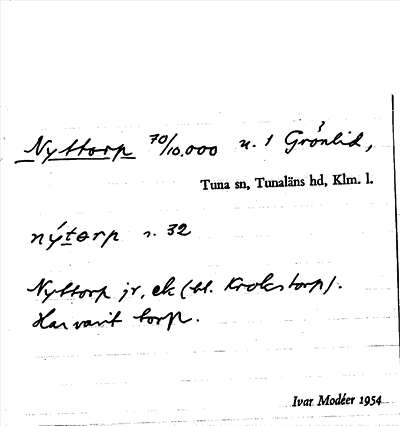 Nyttorp 70/10.000 u. 1 Grönlid,
Tuna sn, Tunaläns hd, Klm. l.
nýtorp n. 32
Nyttorp jr, ek (bl. Krokstorp).
Har varit torp.
Ivar Modéer 1954